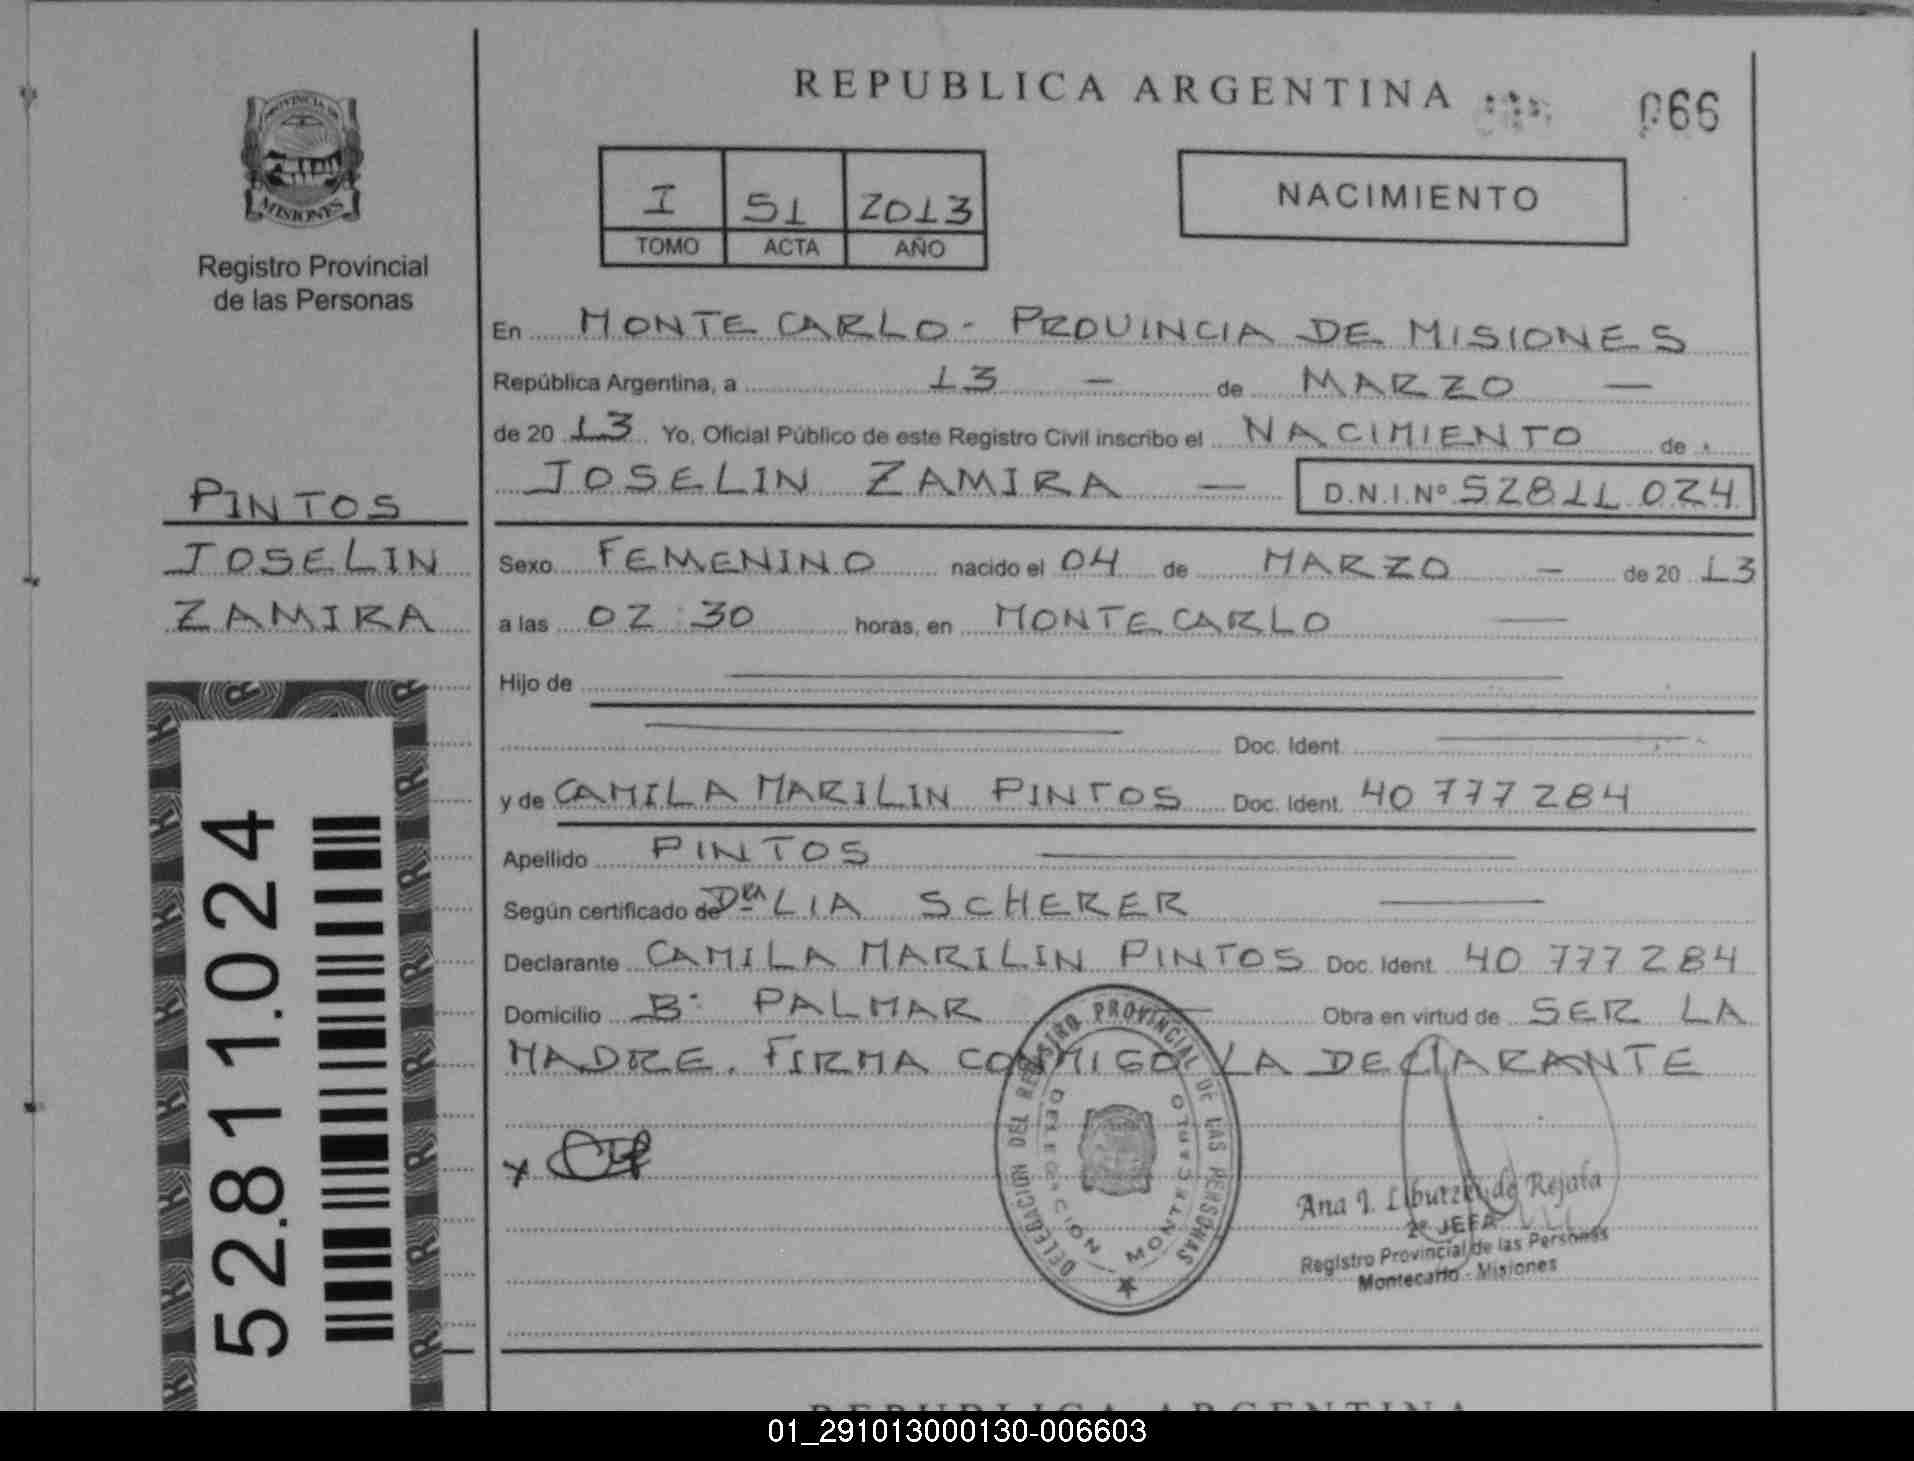 REPUBLICA ARGENTINA
066
PROVINCIA DE
MISIONES
Registro Provincial
de las Personas
I 51 2013
TOMO ACTA AÑO
NACIMIENTO
En MONTECARLO - PROVINCIA DE MISIONES
República Argentina, a 13 — de MARZO —
de 20 13 Yo, Oficial Público de este Registro Civil inscribo el NACIMIENTO de
JOSELIN ZAMIRA — D.N.I.Nº 52811.024
PINTOS
JOSELIN
ZAMIRA
Sexo FEMENINO nacido el 04 de MARZO — de 20 13
a las 02:30 horas, en MONTECARLO —
Hijo de
Doc. Ident.
y de CAMILA MARILIN PINTOS Doc. Ident. 40 777 284
Apellido PINTOS
Según certificado de DRA LIA SCHERER
Declarante CAMILA MARILIN PINTOS Doc. Ident. 40 777 284
Domicilio Bº PALMAR Obra en virtud de SER LA
MADRE. FIRMA CONMIGO LA DECLARANTE
52.811.024
x
DELEGACION DEL REGISTRO PROVINCIAL DE LAS PERSONAS
DELEGACION MONTECARLO
Ana I. de Rejala
2º JEFA
Registro Provincial de las Personas
Montecarlo - Misiones
REPUBLICA ARGENTINA
01_291013000130-006603